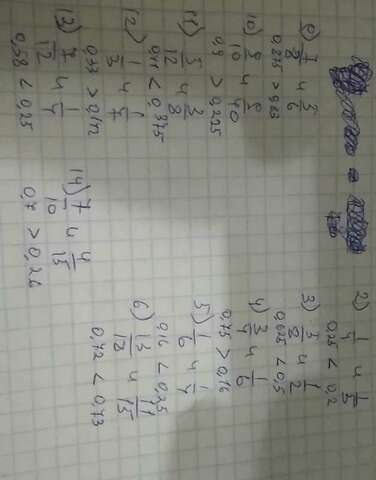 2) 1/4 и 1/5
0,25 < 0,2
3) 5/8 и 1/2
0,625 < 0,5
4) 3/4 и 1/6
0,75 > 0,16
5) 1/6 и 1/4
0,16 < 0,25
6) 13/18 и 11/15
0,72 < 0,73
9) 7/8 и 5/6
0,875 > 0,83
10) 9/10 и 9/40
0,9 > 0,225
11) 5/12 и 3/8
0,41 < 0,375
12) 1/3 и 1/7
0,33 > 0,142
13) 7/12 и 1/4
0,58 < 0,25
14) 7/10 и 4/15
0,7 > 0,26